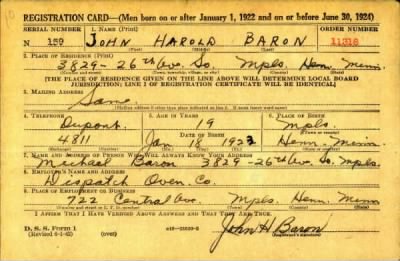 REGISTRATION CARD—(Men born on or after January 1, 1922 and on or before June 30, 1924)
SERIAL NUMBER 1. NAME (Print) ORDER NUMBER
N 159 JOHN HAROLD BARON 11318
(First) (Middle) (Last)
2. PLACE OF RESIDENCE (Print)
3829- 26th Ave. So. Mpls. Henn. Minn.
(Number and street) (Town, township, village, or city) (County) (State)
[THE PLACE OF RESIDENCE GIVEN ON THE LINE ABOVE WILL DETERMINE LOCAL BOARD
JURISDICTION; LINE 2 OF REGISTRATION CERTIFICATE WILL BE IDENTICAL]
3. MAILING ADDRESS
Same
(Mailing address if other than place indicated on line 2. If same insert word same)
4. TELEPHONE 5. AGE IN YEARS 6. PLACE OF BIRTH
Dupont 19 Mpls.
DATE OF BIRTH (Town or county)
4811 Jan 19 1923 Henn. Minn.
(Exchange) (Number) (Mo.) (Day) (Yr.) (State or country)
7. NAME AND ADDRESS OF PERSON WHO WILL ALWAYS KNOW YOUR ADDRESS
Michael Baron 3829-26th Ave. So. Mpls.
8. EMPLOYER'S NAME AND ADDRESS
Dispatch Oven Co.
9. PLACE OF EMPLOYMENT OR BUSINESS
722 Central Ave. Mpls. Henn. Minn
(Number and street or R. F. D. number) (Town) (County) (State)
I AFFIRM THAT I HAVE VERIFIED ABOVE ANSWERS AND THAT THEY ARE TRUE.
D. S. S. Form 1
John H Baron
(Registrant's signature)